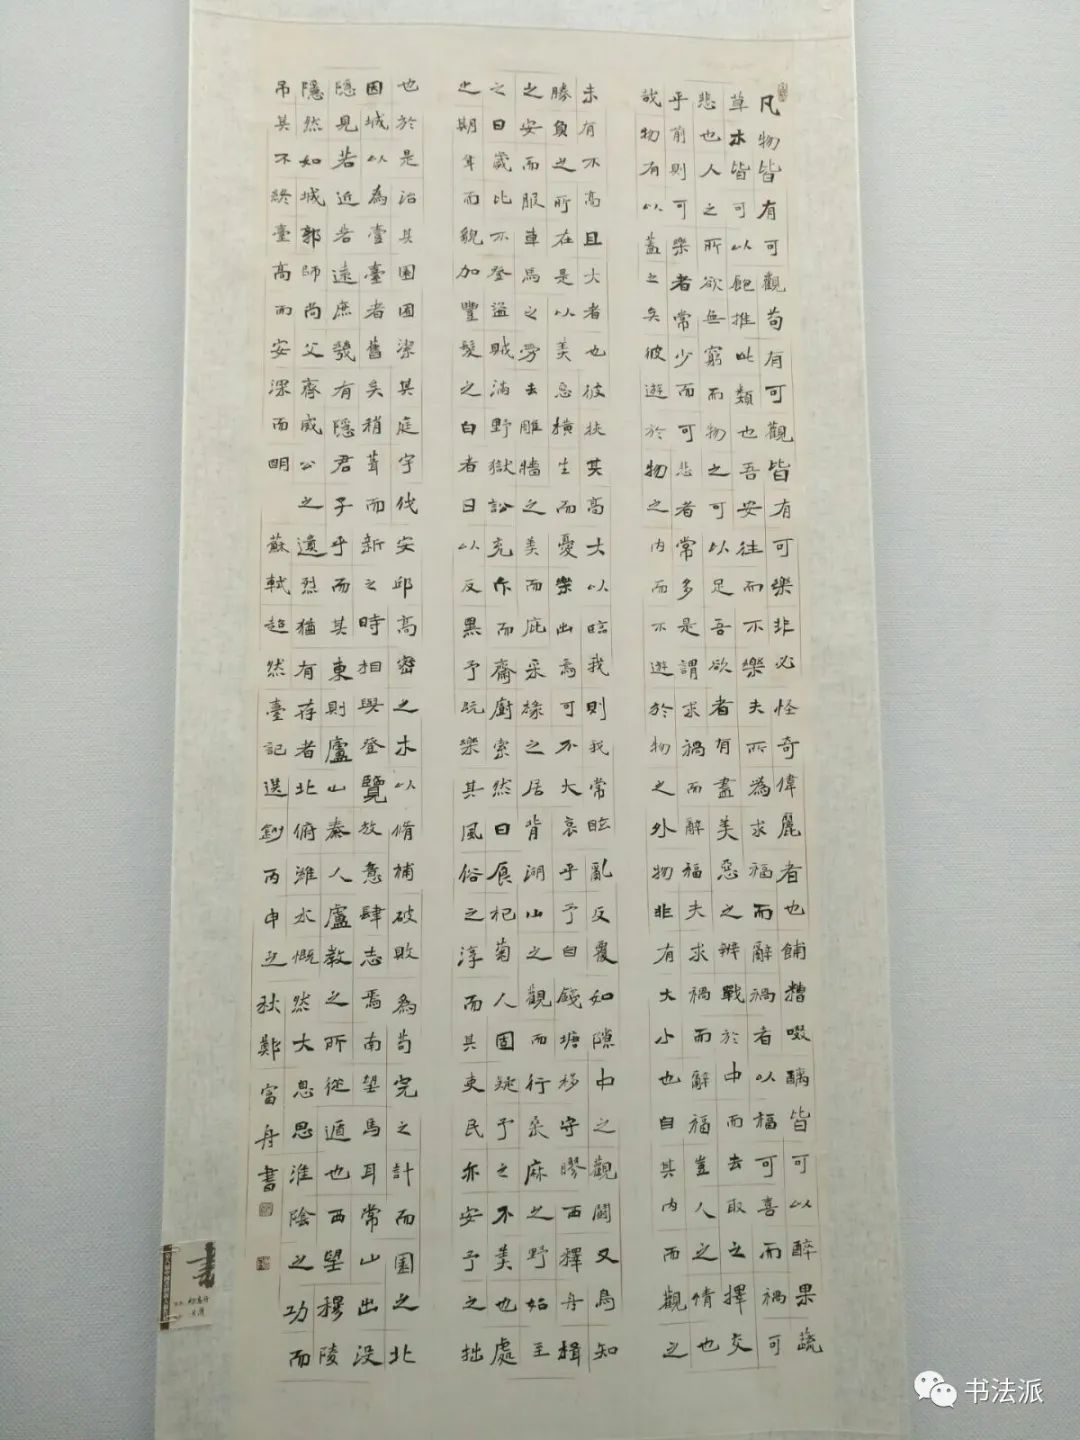 凡物皆有可觀苟有可觀皆有可樂非必怪奇偉麗者也餔糟啜醨皆可以醉果蔬
草木皆可以飽推此類也吾安往而不樂夫所為求福而辭禍者以福可喜而禍可
悲也人之所欲無窮而物之可以足吾欲者有盡美惡之辨戰於中而去取之擇交
乎前則可樂者常少而可悲者常多是謂求禍而辭福夫求禍而辭福豈人之情也
哉物有以蓋之矣彼遊於物之內而不遊於物之外物非有大小也自其內而觀之
未有不高且大者也彼挾其高大以臨我則我常眩亂反覆如隙中之觀鬭又烏知
勝負之所在是以美惡橫生而憂樂出焉可不大哀乎予自錢塘移守膠西釋舟楫
之安而服車馬之勞去雕牆之美而庇采椽之居背湖山之觀而行桑麻之野始至
之日歲比不登盜賊滿野獄訟充斥而齋廚索然日食杞菊人固疑予之不美也處
之期年而貌加豐髮之白者日以反黑予既樂其風俗之淳而其吏民亦安予之拙
也於是治其園囿潔其庭宇伐安邱高密之木以脩補破敗為苟完之計而園之北
因城以為臺臺者舊矣稍葺而新之時相與登覽放意肆志焉南望馬耳常山出沒
隱見若近若遠庶幾有隱君子乎而其東則盧山秦人盧教之所從遁也西望穆陵
隱然如城郭師尚父齊威公之遺烈猶有存者北俯濰水慨然大息思淮陰之功而
吊其不終臺高而安深而明 蘇軾超然臺記選鈔丙申之秋鄭富舟書
书法派